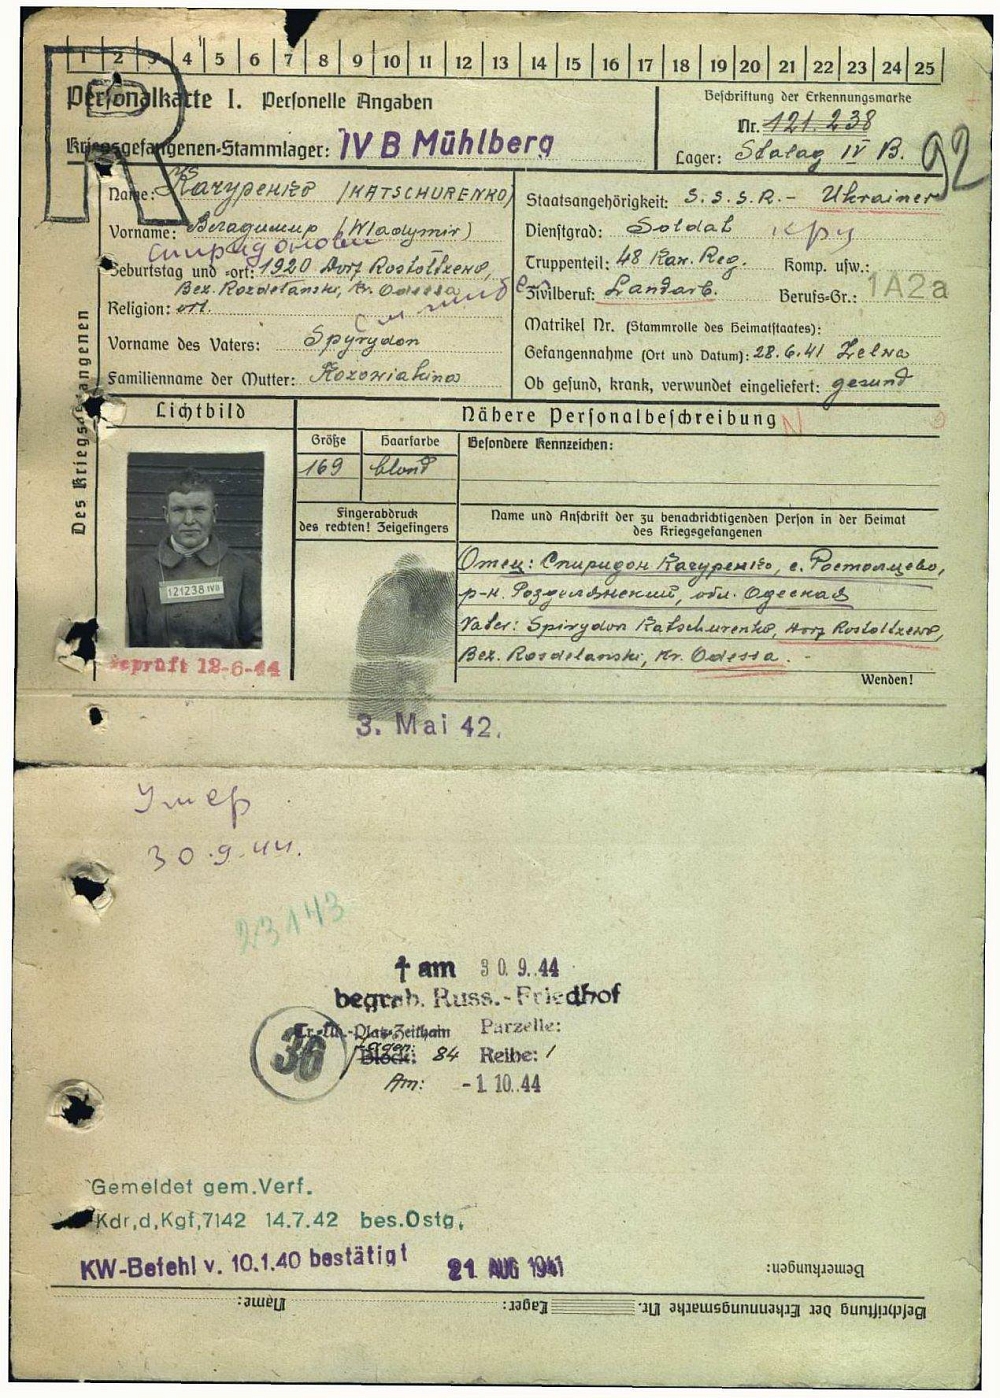 1 2 3 4 5 6 7 8 9 10 11 12 13 14 15 16 17 18 19 20 21 22 23 24 25
R
Personalkarte I. Personelle Angaben
Kriegsgefangenen-Stammlager: IV B Mühlberg
Beschriftung der Erkennungsmarke
Nr. 121.238
Lager: Stalag IV B.
92
Des Kriegsgefangenen
Name: Качуренко (KATSCHURENKO)
Vorname: Владимир (Wladymir)
Спиридонович
Geburtstag und -ort: 1920 Dorf Rostoltzewo,
Bez. Rozdelanski, Kr. Odessa
Religion: ort.
Vorname des Vaters: Spyrydon
Familienname der Mutter:
Staatsangehörigkeit: S.S.S.R. - Ukrainer
Dienstgrad: Soldat
Truppenteil: 48 Kav. Reg. Komp. usw.:
Zivilberuf: Landarb. Berufs-Gr.: 1A2a
Matrikel Nr. (Stammrolle des Heimatstaates):
Gefangennahme (Ort und Datum): 28.6.41 Zelwa
Ob gesund, krank, verwundet eingeliefert: gesund
Lichtbild
Nähere Personalbeschreibung
N
Größe Haarfarbe Besondere Kennzeichen:
169 blond
Fingerabdruck
des rechten! Zeigefingers
Name und Anschrift der zu benachrichtigenden Person in der Heimat
des Kriegsgefangenen
121238 IVB
Отец: Спиридон Качуренко, с. Ростолцево,
р-н. Розделянский, обл. Одесная
Vater: Spirydon Katschurenko, Dorf Rostoltzewo,
Bez. Rosdelanski, Kr. Odessa. -
Geprüft 12-6-44
Wenden!
3. Mai 42.
Умер
30.9.44.
23143
† am 30.9.44
begrab. Russ.-Friedhof
Tr.-Üb.-Platz-Zeithain Parzelle:
36
Block: 84 Reihe: 1
Am: -1.10.44
Gemeldet gem.Verf.
Kdr,d,Kgf,7142 14.7.42 bes.Ostg,
KW-Befehl v. 10.1.40 bestätigt 21 AUG 1941
Bemerkungen:
Name: Lager: Beschriftung der Erkennungsmarke Nr.